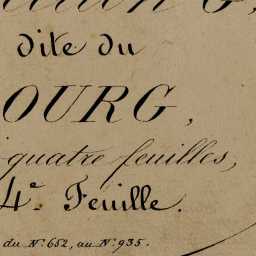 dite du
OURG,
quatre feuilles,
4e. Feuille.
du N°. 652, au N°. 935.